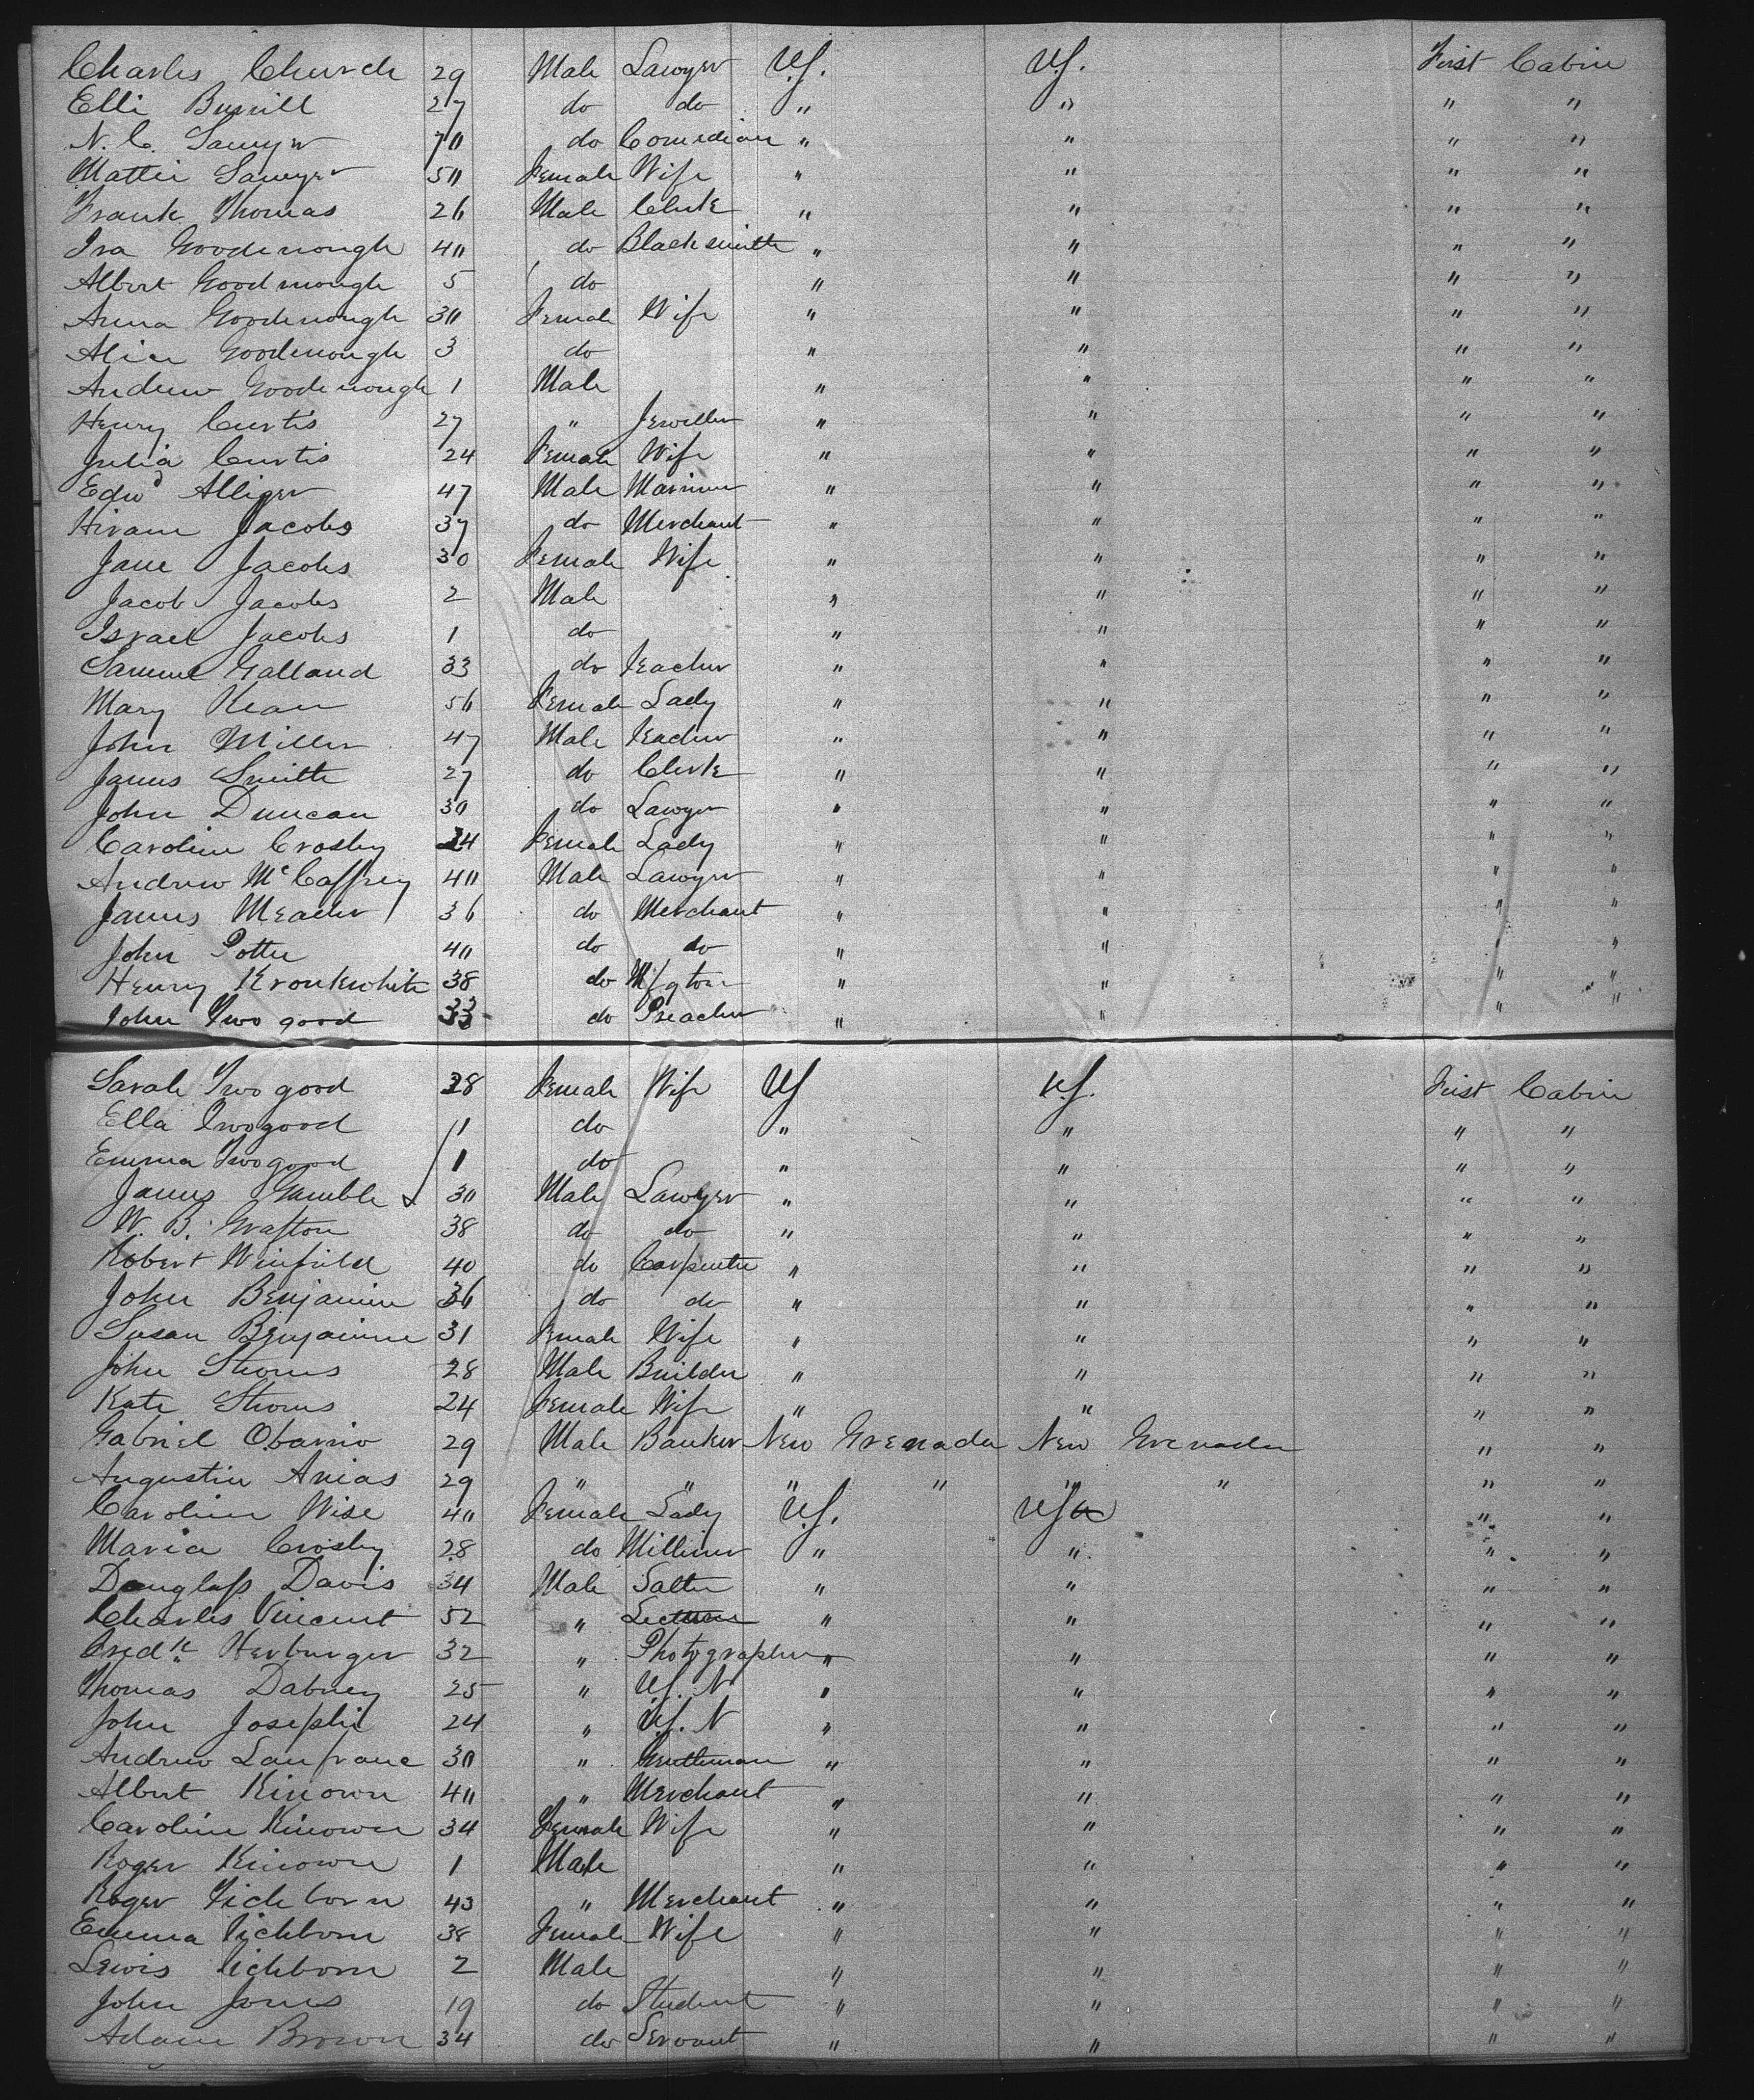 Charles Church 29 Male Lawyer U.S. U.S. First Cabin
Elli Burrill 27 do do " " " "
N. C. Sawyer 70 do Comedian " " " "
Mattie Sawyer 50 Female Wife " " " "
Frank Thomas 26 Male Clerk " " " "
Ira Goodenough 40 do Blacksmith " " " "
Albert Goodenough 5 do " " " "
Anna Goodenough 30 Female Wife " " " "
Alice Goodenough 3 do " " " "
Andrew Goodenough 1 Male " " " "
Henry Curtis 27 " Jeweller " " " "
Julia Curtis 24 Female Wife " " " "
Edwd Alliger 47 Male Mariner " " " "
Hiram Jacobs 37 do Merchant " " " "
Jane Jacobs 30 Female Wife " " " "
Jacob Jacobs 2 Male " " " "
Israel Jacobs 1 do " " " "
Samuel Galland 33 do Teacher " " " "
Mary Kean 56 Female Lady " " " "
John Miller 47 Male Teacher " " " "
James Smith 27 do Clerk " " " "
John Duncan 30 do Lawyer " " " "
Caroline Crosby 24 Female Lady " " " "
Andrew McCaffrey 40 Male Lawyer " " " "
James Meader 36 do Merchant " " " "
John Potter 40 do do " " " "
Henry Kronkwhite 38 do " " " "
John Twogood 33 do Preacher " " " "
Sarah Twogood 28 Female Wife US U.S. First Cabin
Ella Twogood 1 do " " " "
Emma Twogood 1 do " " " "
James Gamble 30 Male Lawyer " " " "
W. B. Grafton 38 do do " " " "
Robert Winfield 40 do Carpenter " " " "
John Benjamin 36 do do " " " "
Susan Benjamin 31 Female Wife " " " "
John Storms 28 Male Builder " " " "
Kate Storms 24 Female Wife " " " "
Gabriel Obarrio 29 Male Banker New Grenada New Grenada " "
Augustin Arias 29 " " " " " " " "
Caroline Wise 40 Female Lady U.S. US " "
Maria Crosby 28 do Milliner " " " "
Douglass Davis 34 Male Salter " " " "
Charles Vincent 52 " " " " "
Fredk Herburger 32 " Photographer " " " "
Thomas Dabney 25 " U.S. N " " " "
John Josephi 24 " U.S. N " " " "
Andrew Lanfranc 30 " Gentleman " " " "
Albert Kinown 40 " Merchant " " " "
Caroline Kinown 34 Female Wife " " " "
Roger Kinown 1 Male " " " "
Roger Tichborn 43 " Merchant " " " "
Emma Tichborn 38 Female Wife " " " "
Lewis Tichborn 2 Male " " " "
John Jones 19 do Student " " " "
Adam Brown 34 do Servant " " " "